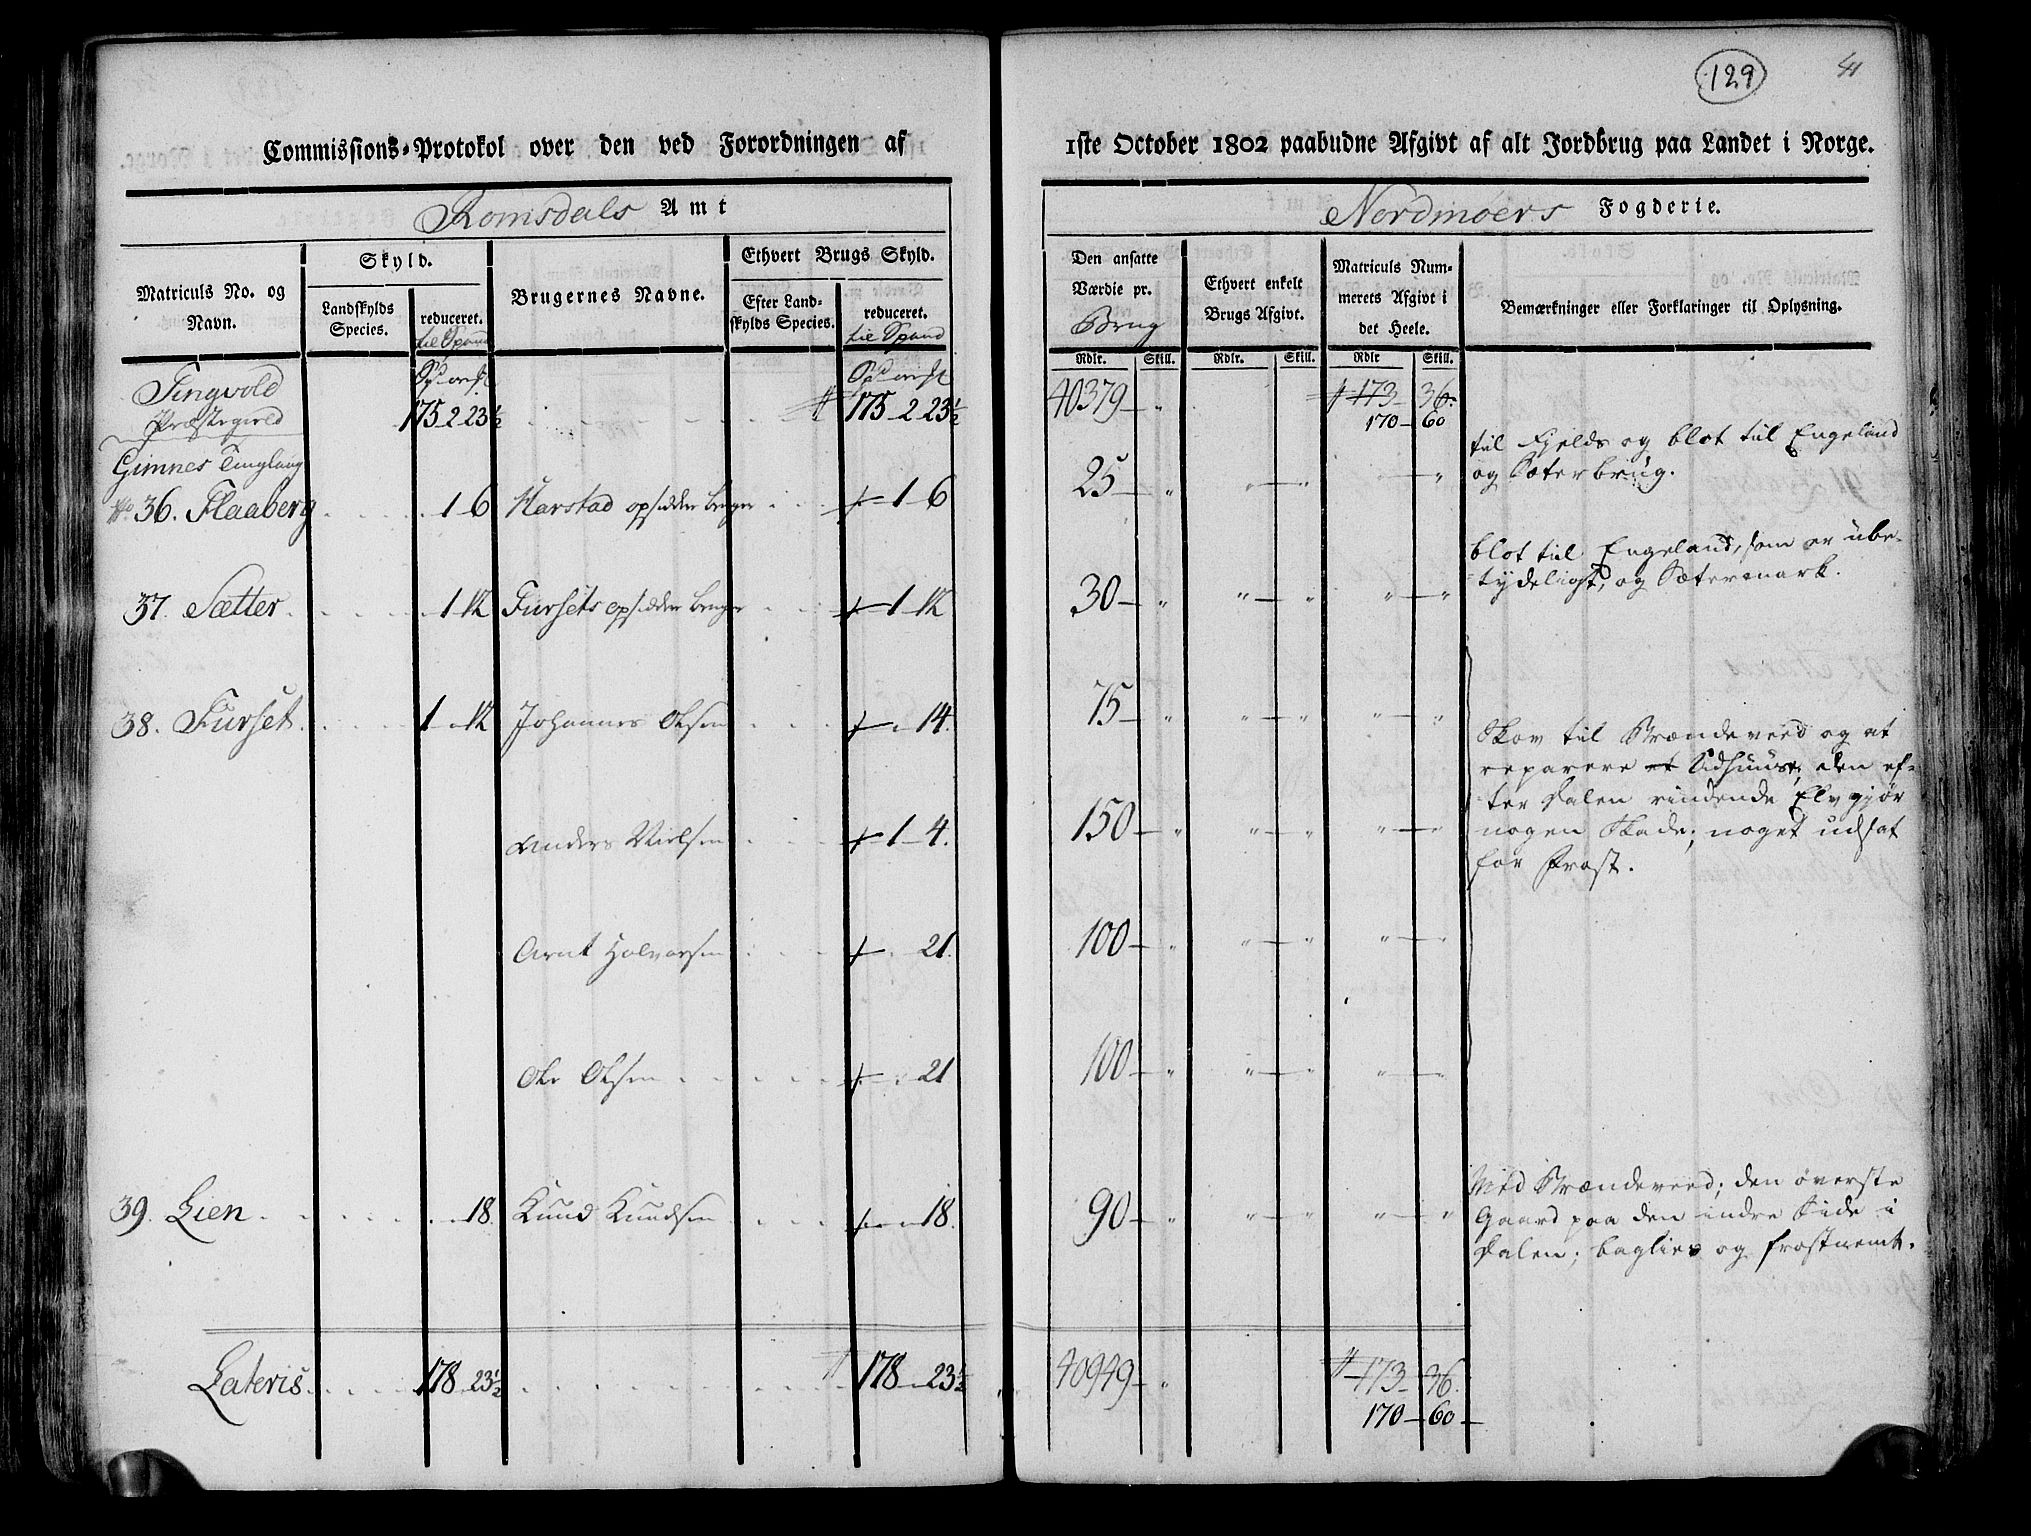 129
41
Commissions-Protokol over den ved Forordningen af 1ste October 1802 paabudne Afgivt af alt Jordbrug paa Landet i Norge.
Romsdals Amt
Nordmøers Fogderie.
Matriculs No. og Navn.
Skyld.
Landskylds Species.
reduceret.
til Spand
Brugernes Navne.
Ethvert Brugs Skyld.
Efter Landskylds Species.
reduceret.
til Spand
Den ansatte Værdie pr. Brug
Ethvert enkelt Brugs Afgivt.
Matriculs Nummerets Afgivt i det Heele.
Bemærkninger eller Forklaringer til Oplysning.
Rdlr. Skill. Rdlr. Skill. Rdlr Skill.
Tingvold
Præstegield
175 2 23½ 175 2 23½ 40379 " 173 36.
170 60
Gimnes Tinglaug
No. 36. Flaaberg 1 6 Harstad opsidder bruger 1 6 25 " " " "
til Fjelds og blot til Engeland
og Sæterbrug.
37. Sætter 1 12 Fursets opsidder bruger 1 12 30 " " " " "
blot til Engeland, som er ube-
tydeligt, og Sætermark.
38. Furset 1 12 Johannes Olsen 14. 75 " " " " "
Skov til Brændeveed og at
reparere Udhuuse; den ef-
ter Dalen rindende Elv gjør
nogen Skade; noget udsat
for Frost.
Anders Nielsen 1 4. 150 " " " " "
Arnt Halvorsen 21. 100 " " " " "
Ole Olsen 21 100 " " " " "
39. Lien 18. Knud Knudsen 18. 90 " " " " "
Med Brændeveed; den øverste
Gaard paa den indre Side i
Dalen; baglies og frostnemt.
Lateris 178 23½ 178 23½ 40949 " 173 36.
170 60